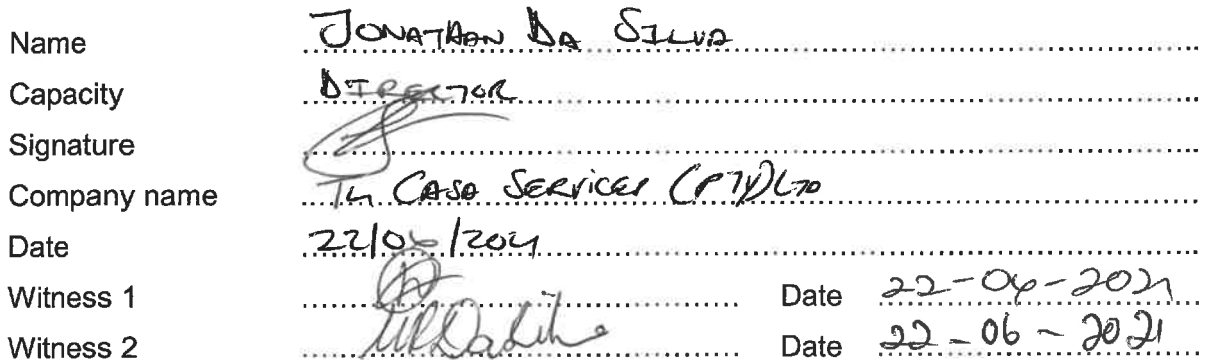 Name JONATHAN DA SILVA
Capacity DIRECTOR
Signature
Company name CASA SERVICES (PTY) LTD
Date 22/06/2021
Witness 1 Date 22-06-2021
Witness 2 Date 22-06-2021